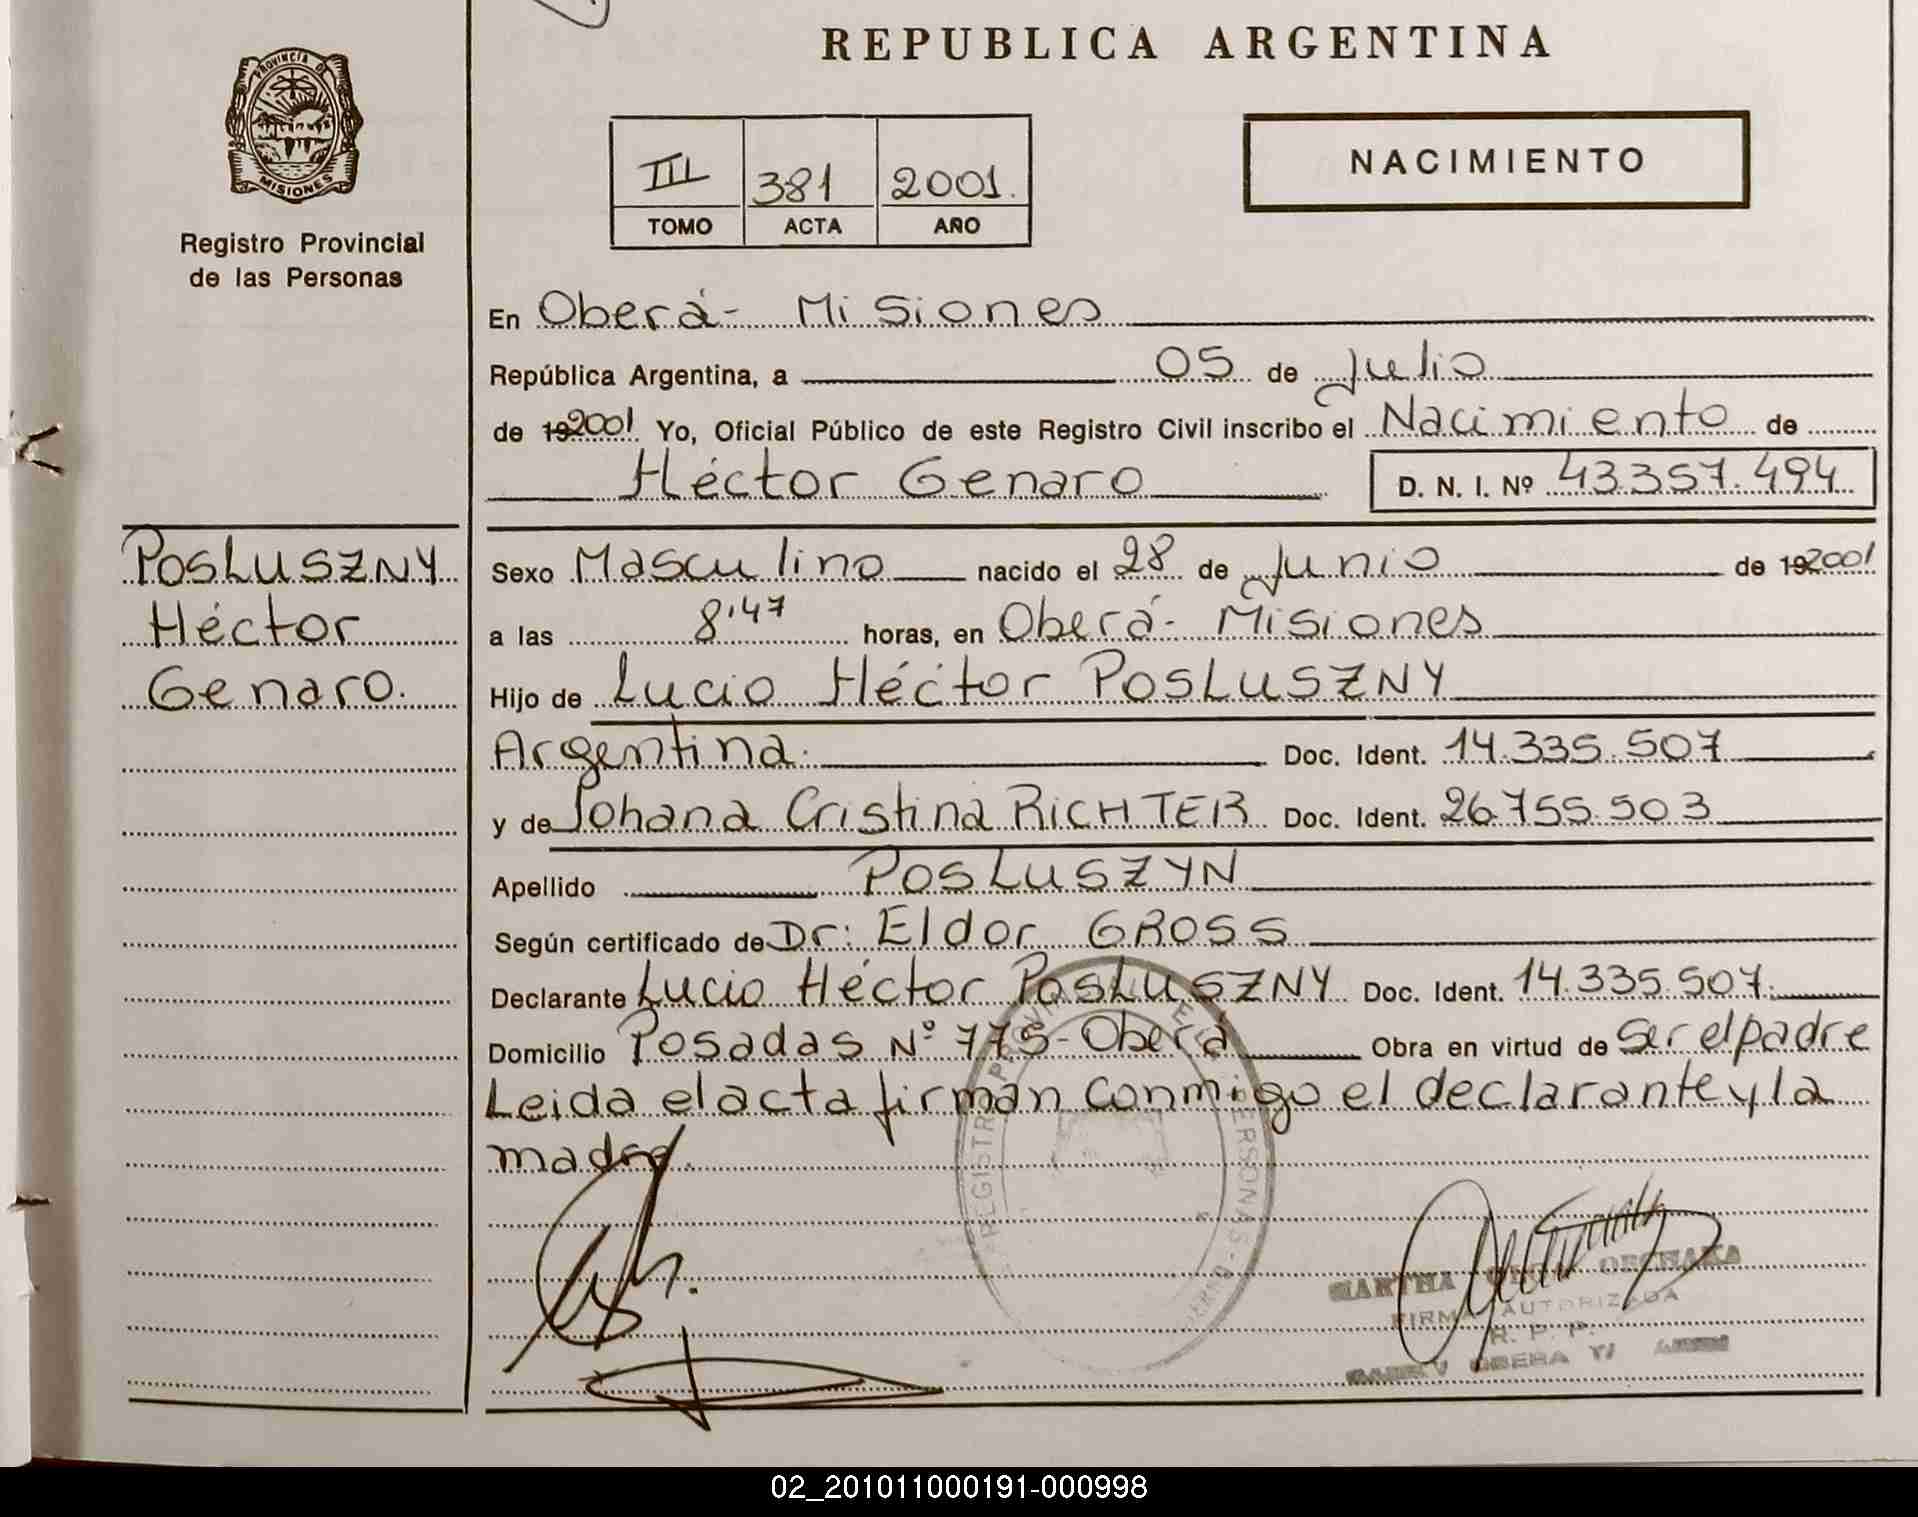 REPUBLICA ARGENTINA
PROVINCIA DE
MISIONES
Registro Provincial
de las Personas
III 381 2001.
TOMO ACTA AÑO
NACIMIENTO
En Oberá- Misiones
República Argentina, a 05 de Julio
de 192001 Yo, Oficial Público de este Registro Civil inscribo el Nacimiento de
Héctor Genaro D. N. I. Nº 43.357.494
POSLUSZNY
Héctor
Genaro.
Sexo Masculino nacido el 28 de Junio de 192001
a las 8'47 horas, en Oberá- Misiones
Hijo de Lucio Héctor POSLUSZNY
Argentina. Doc. Ident. 14.335.507
y de Johana Cristina RICHTER Doc. Ident. 26.755.503
Apellido POSLUSZYN
Según certificado de Dr: Eldor GROSS
Declarante Lucio Héctor POSLUSZNY Doc. Ident. 14.335.507.
Domicilio Posadas Nº 775-Oberá Obra en virtud de ser el padre
Leida el acta firman conmigo el declarante y la
madre.
REGISTRO PERSONAS
MARTHA
FIRMA AUTORIZADA
R. P. P.
OBERA
02_201011000191-000998